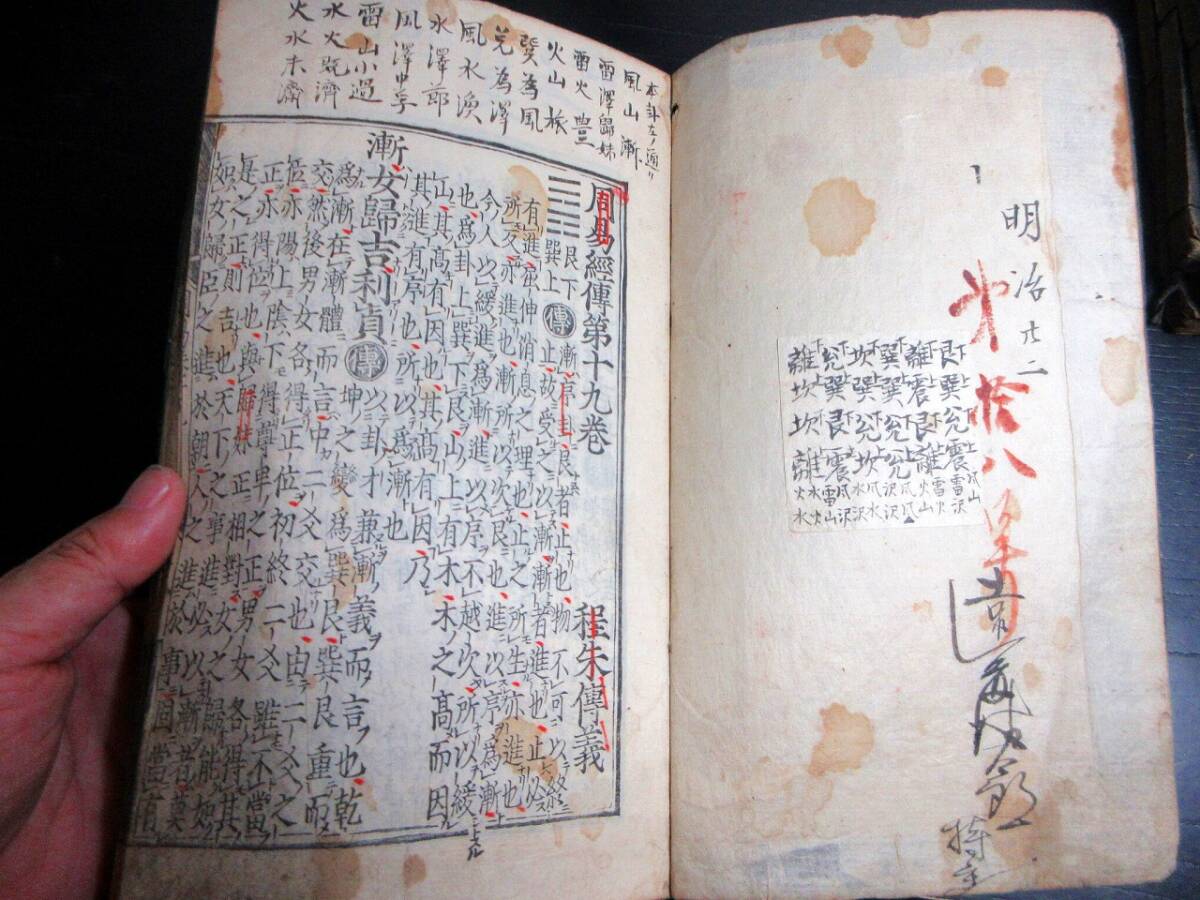 明治廿二
第拾八
艮下巽上兌下震上 風山 雷沢
離下震上艮下離上 雷火 火山
巽下巽上兌下兌上
坎下巽上兌下坎上 風水 水沢
兌下巽上艮下震上 風沢 雷山
離下坎上坎下離上 水火 火水
本卦左ノ通リ
風山漸
雷澤歸妹
雷火豊
火山旅
巽為風
兌為澤
風水渙
水澤節
風澤中孚
雷山小過
水火既濟
火水未濟
周易經傳第十九卷 程朱傳義
艮下
巽上
傳 漸序卦艮者止也物不可以終
止故受之以漸漸者進也止必
有進屈伸消息之理也止之所生亦進也
所反亦進也漸所以次艮也進以序爲漸
今人以緩進爲漸進以序不越次所以緩
也爲卦上巽下艮山上有木木之高而因
山其高有因也其高有因乃
其進有序也所以爲漸也
漸女歸吉利貞
傳 以卦才兼漸義而言也乾
坤之變爲巽艮巽艮重而
爲漸在漸體而言中二爻交也由二爻之
交然後男女各得正位初終二爻雖不當
位亦陽上陰下得尊卑之正男女各得其
正亦得位也與歸妹正相對女之歸能如
是之正則吉也天下之事進必以漸者莫
如女歸臣之進於朝人之進於事固當有